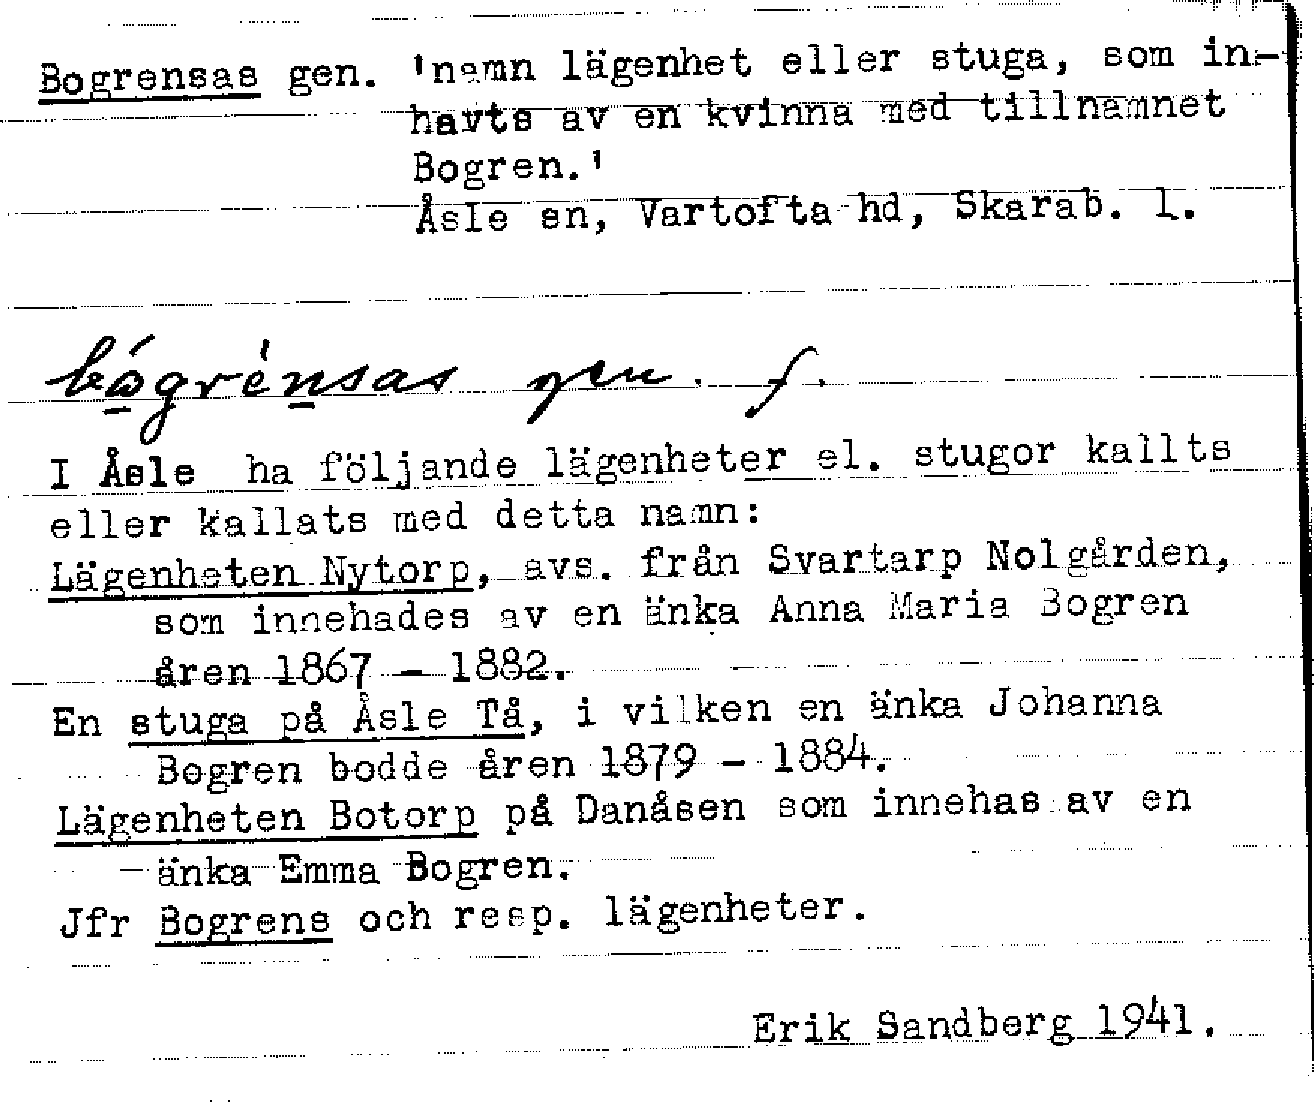 Bogrensas gen. 'namn lägenhet eller stuga, som in-
havts av en kvinna med tillnamnet
Bogren.'
Åsle sn, Vartofta hd, Skarab. l.
bógrénsas gen. f.
I Åsle ha följande lägenheter el. stugor kallts
eller kallats med detta namn:
Lägenheten Nytorp, avs. från Svartarp Nolgården,
som innehades av en änka Anna Maria Bogren
åren 1867 - 1882.
En stuga på Åsle Tå, i vilken en änka Johanna
Bogren bodde åren 1879 - 1884.
Lägenheten Botorp på Danåsen som innehas av en
änka Emma Bogren.
Jfr Bogrens och resp. lägenheter.
Erik Sandberg 1941.